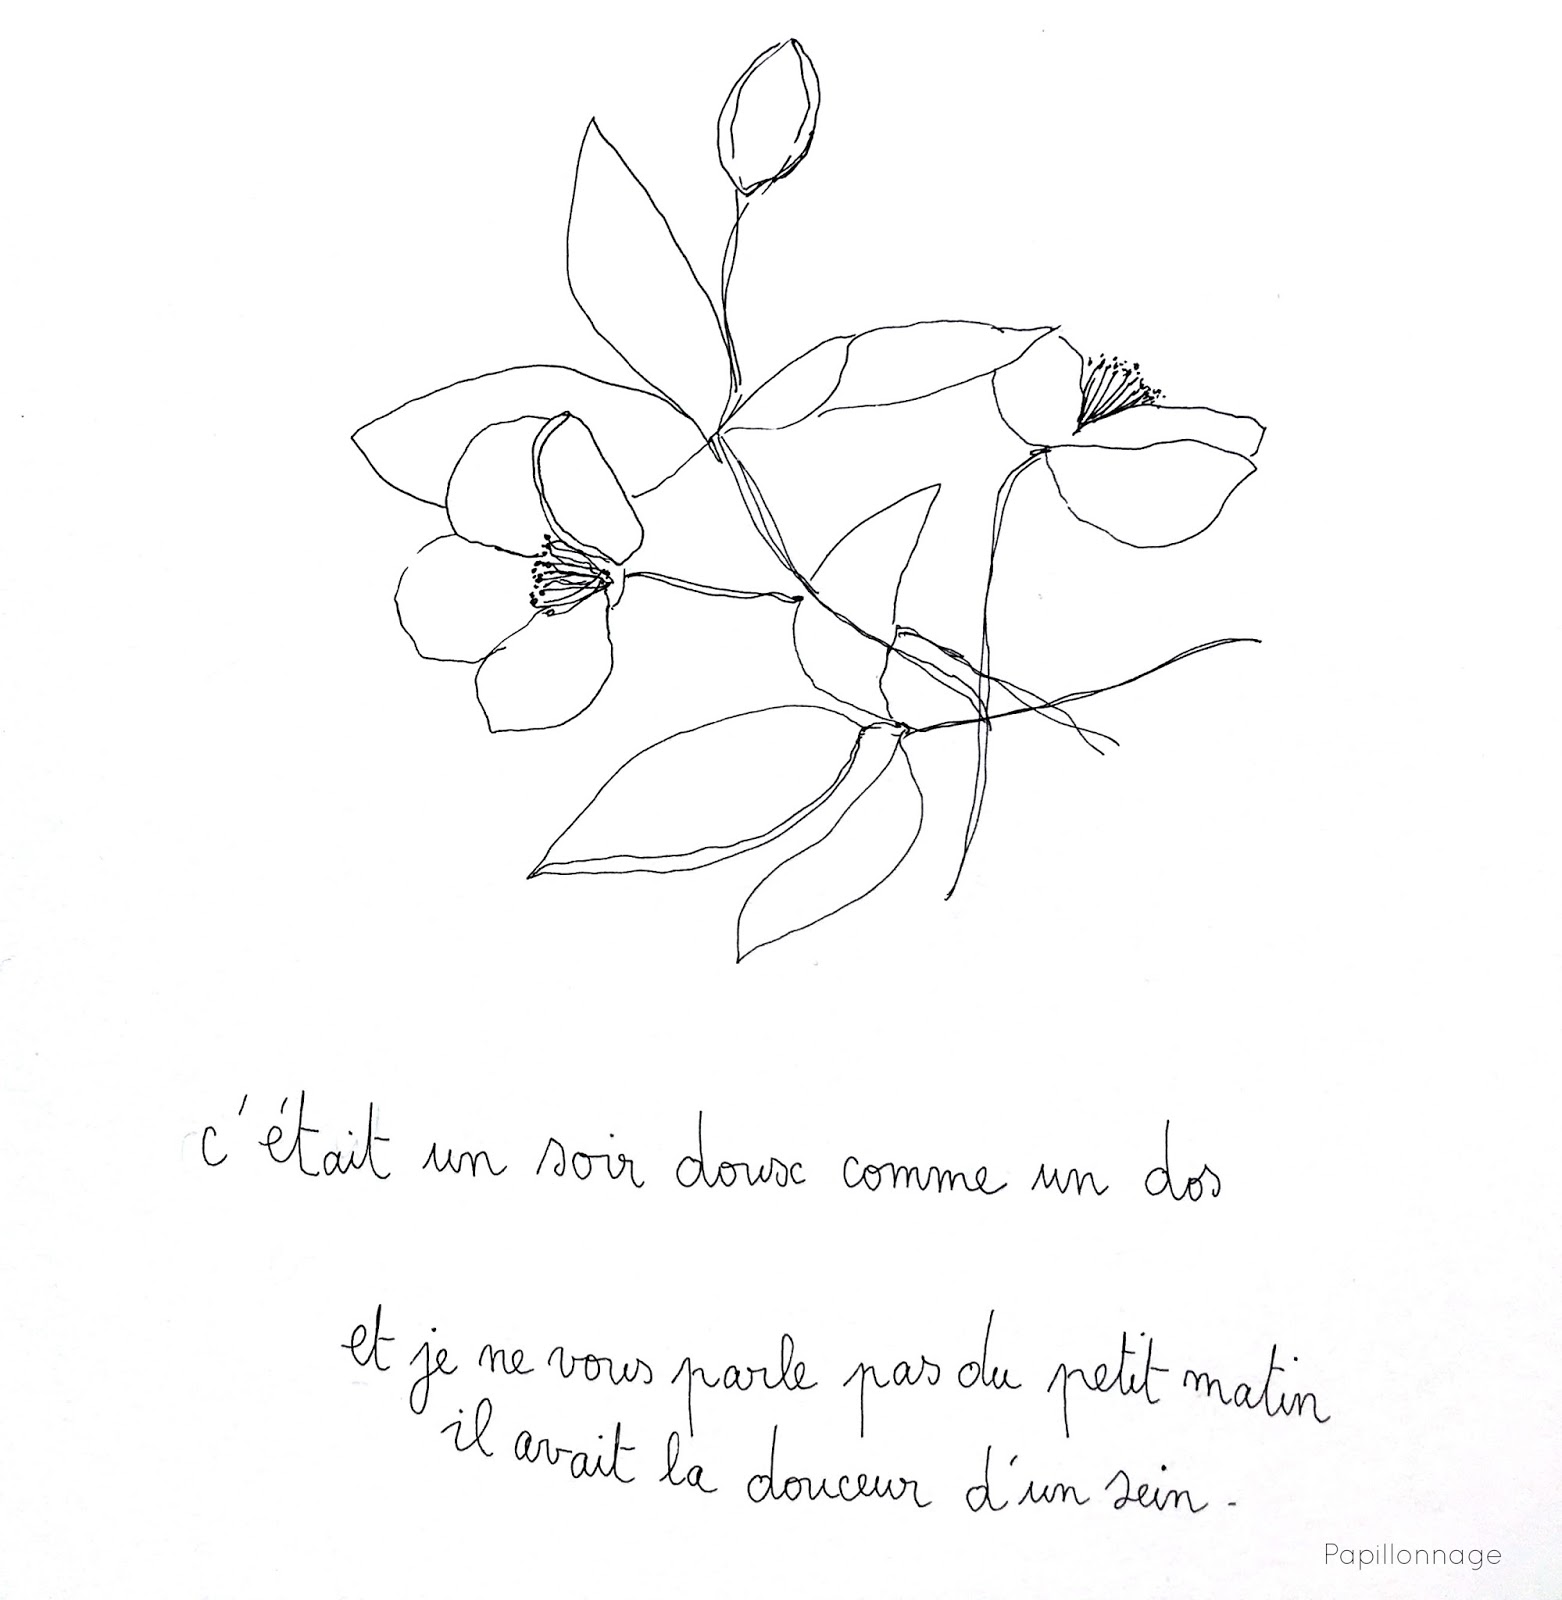 c'était un soir doux comme un dos
et je ne vous parle pas du petit matin
il avait la douceur d'un sein.
Papillonnage